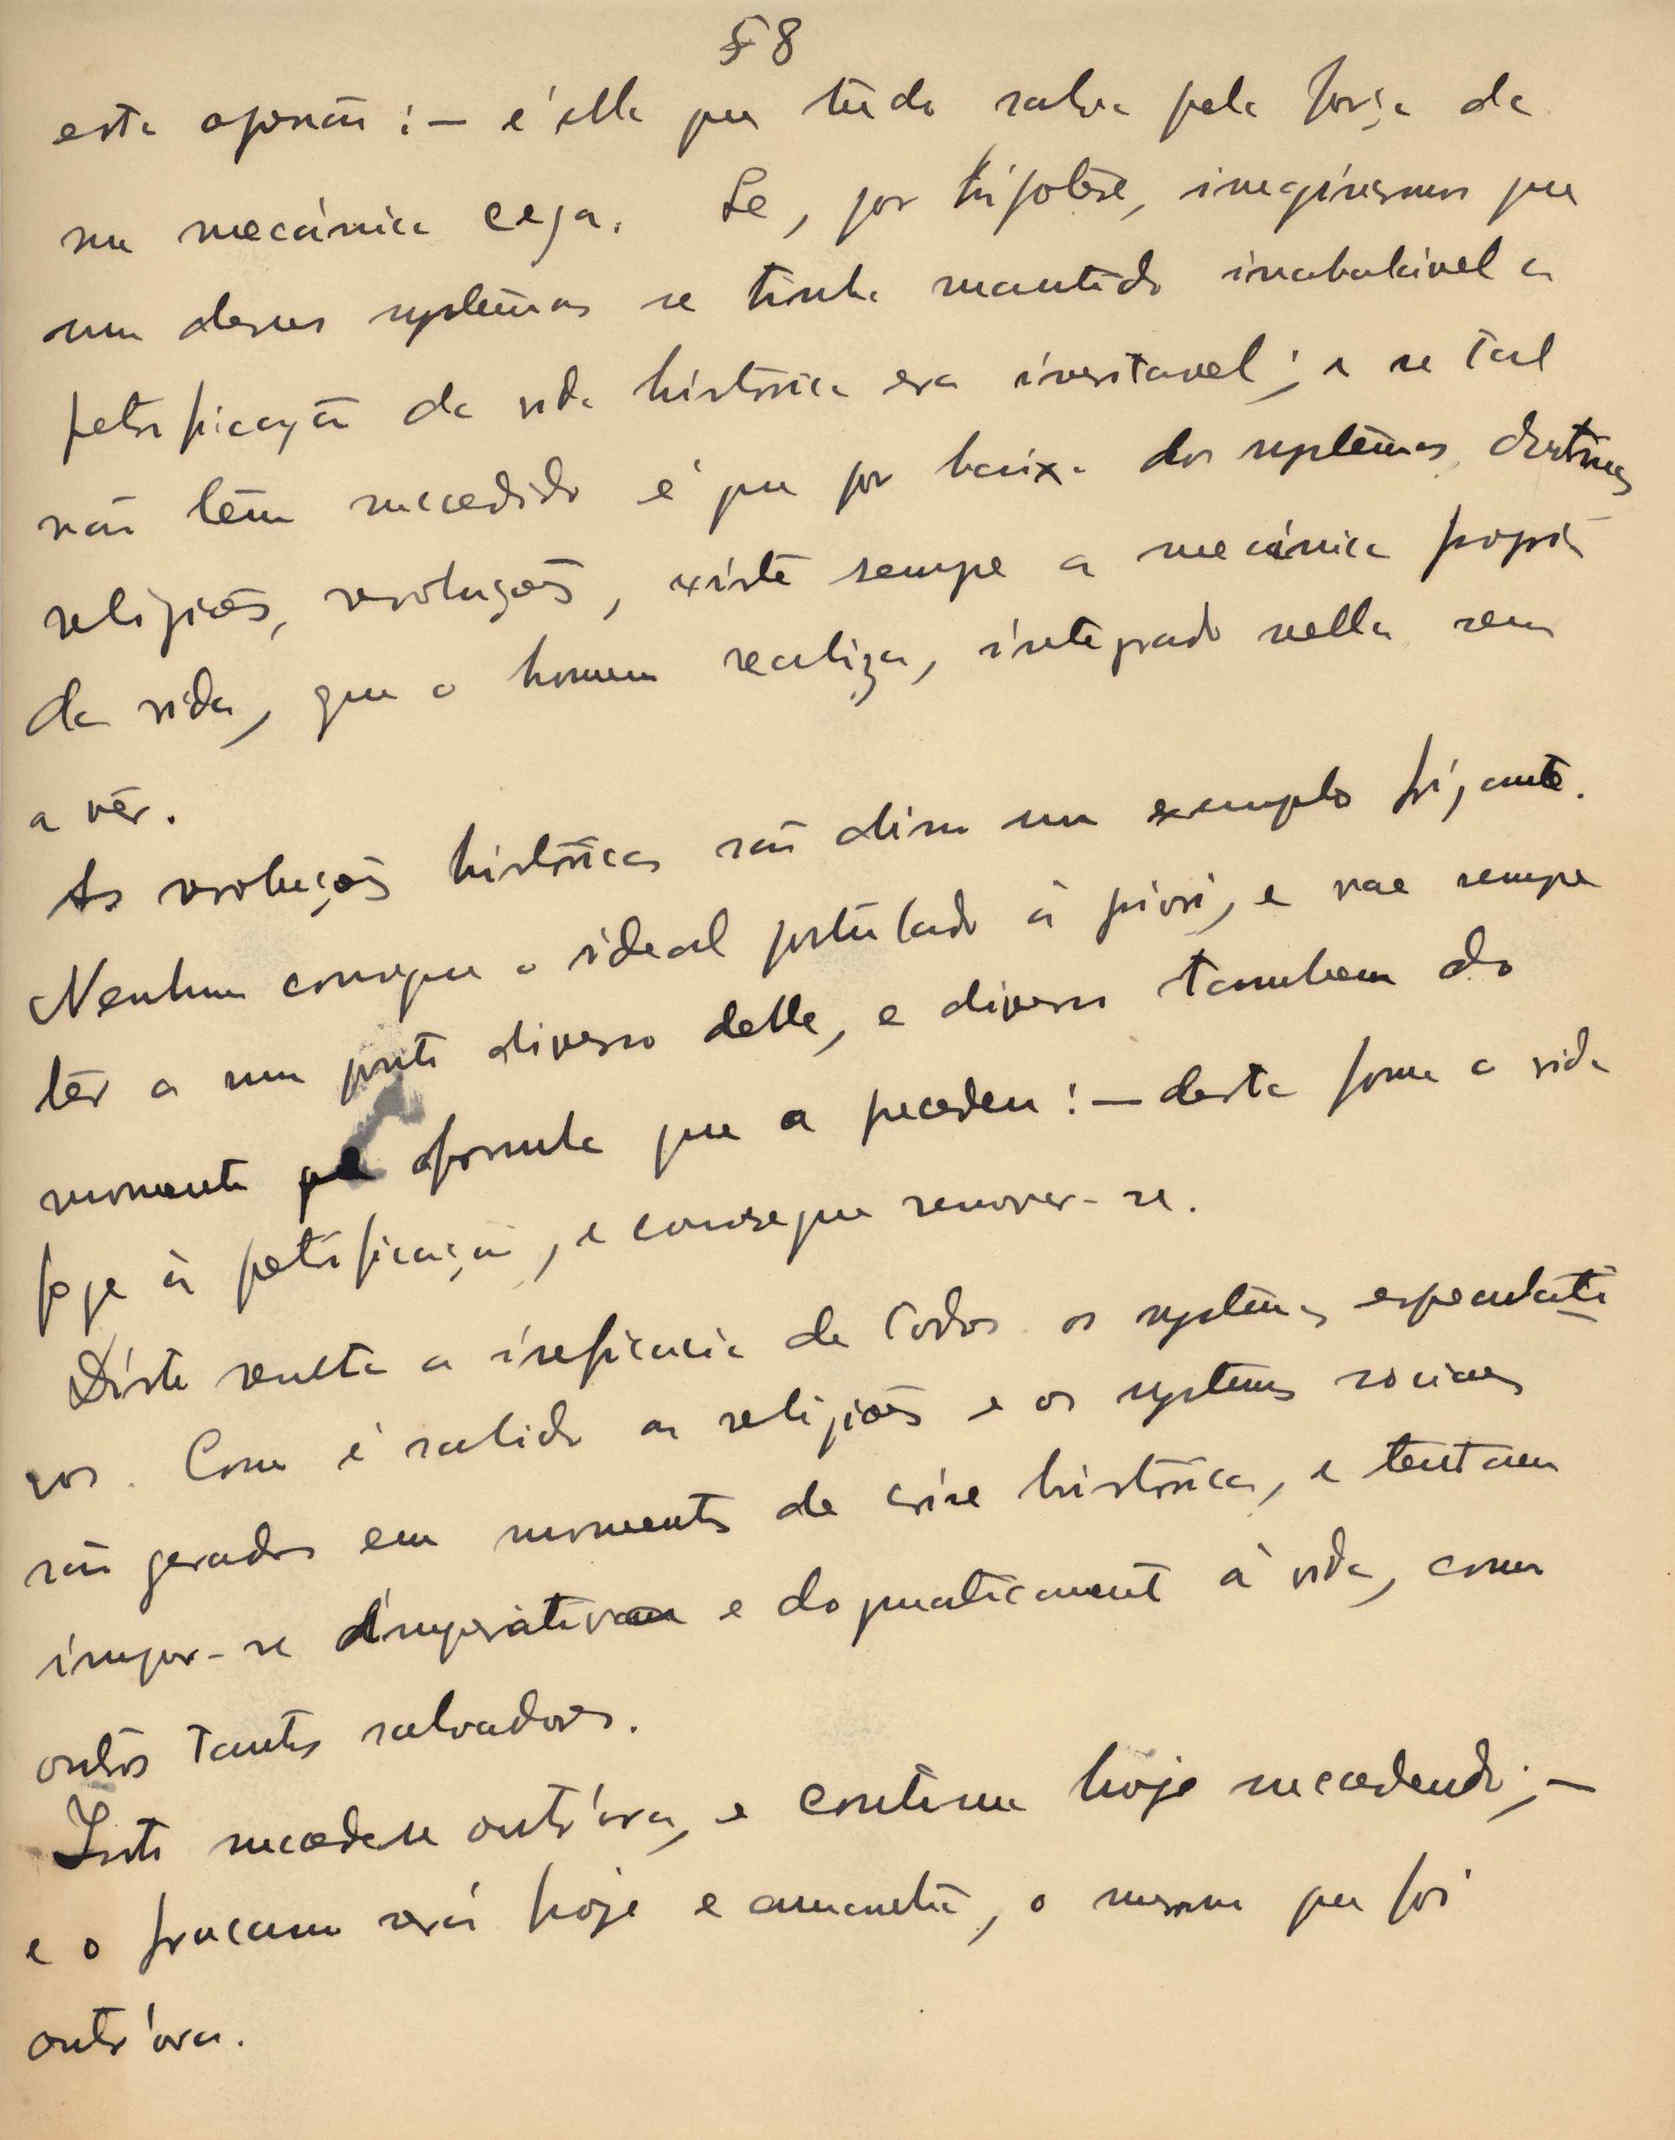 58
esta oposição: — é ella que tudo salva pela força da
sua mecánica cega. Se, por hipótese, imaginarmos que
um desses systêmas se tinha mantido inabalável a
petrificação da vida histórica era inevitavel; e se tal
não têm succedido é que por baixo dos systêmas, doutrinas
religiões, revoluções, existe sempre a mecánica propria
da vida, que o homem realiza, integrado nella sem
a vêr.
As revoluções históricas são disso um exemplo frizante.
Nenhuma consegue o ideal postulado à priori, e vae sempre
têr a um ponto diverso delle, e diverso tambem do
momento formula que a precedeu: — desta forma a vida
foge à petrificação, e consegue renovar-se.
Disto resulta a ineficacia de todos os systêmas especulati
vos. Como é sabido as religiões e os systemas sociaes
são gerados em momentos de crise histórica, e tentam
impor-se imperativa e dogmaticamente à vida, como
outros tantos salvadores.
Isto succedeu outr'ora, e continua hoje succedendo; —
e o fracasso será hoje e amanhã, o mesmo que foi
outr'ora.